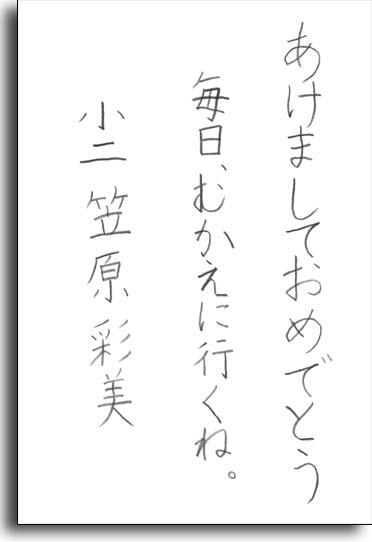 あけましておめでとう
毎日、むかえに行くね。
小二 笠原彩美